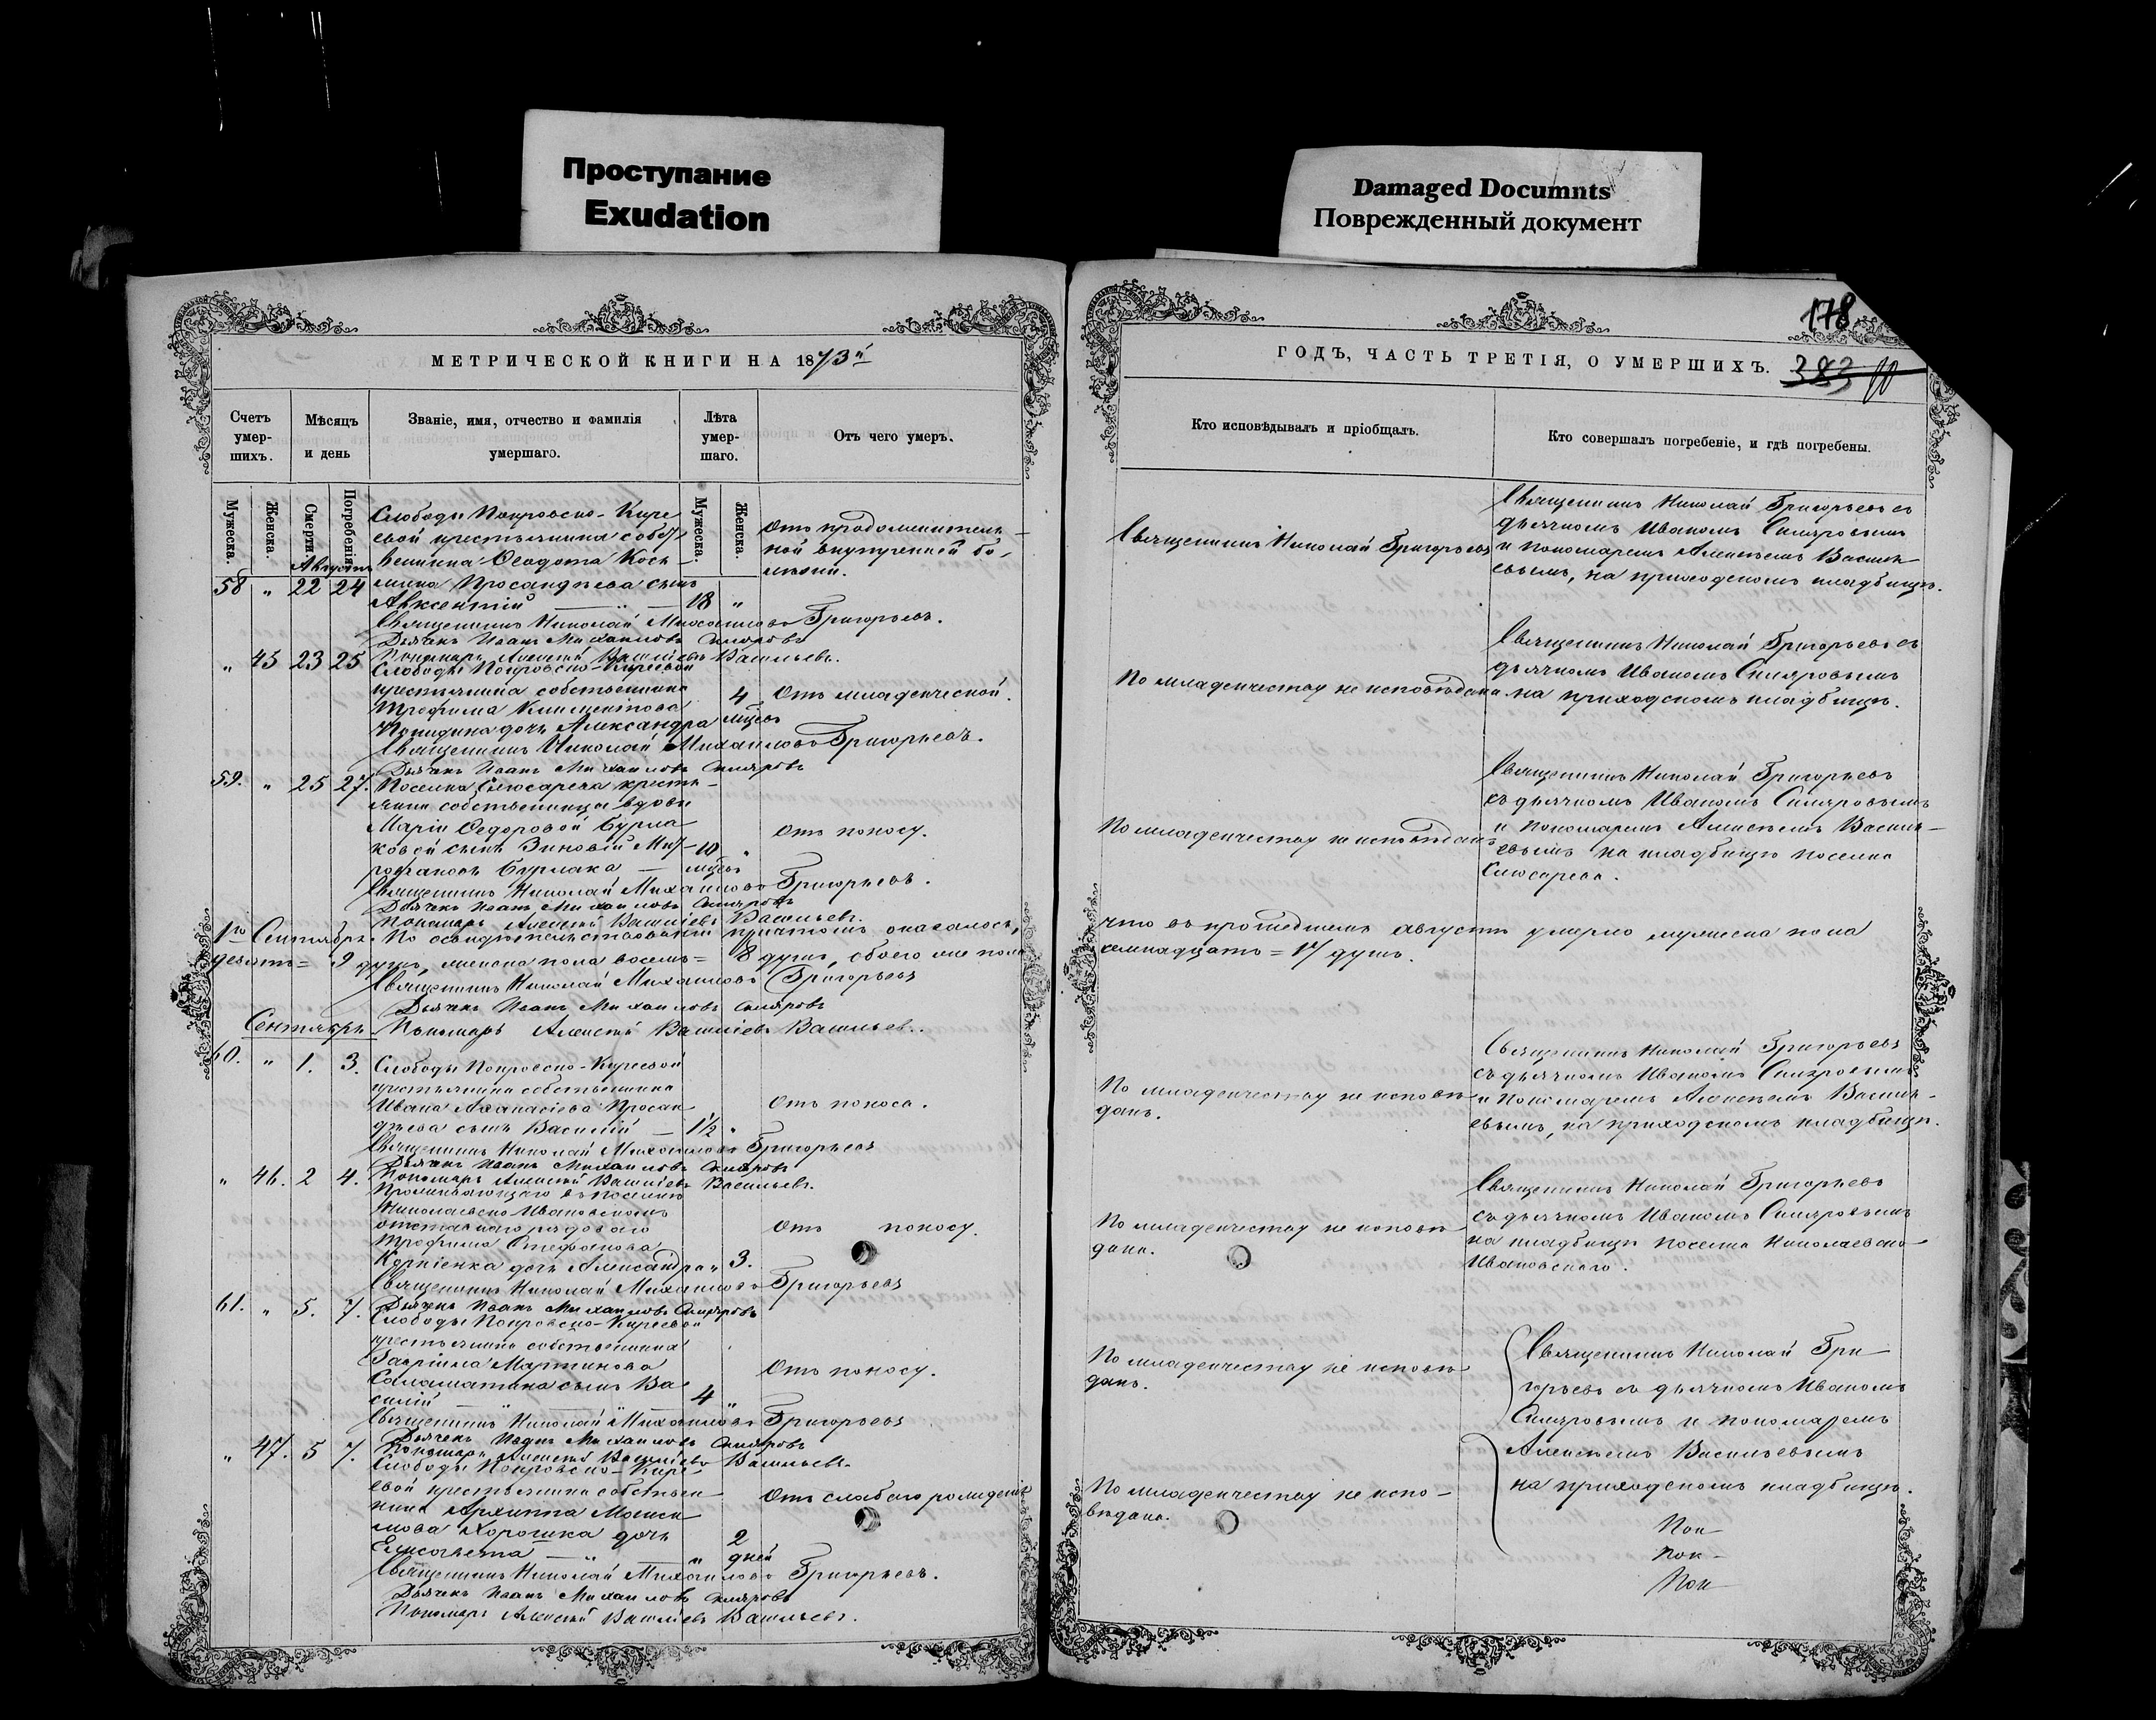 Проступание
Exudation
Damaged Documnts
Поврежденный документ
178
МЕТРИЧЕСКОЙ КНИГИ НА 1873й
Счетъ умер-шихъ.
Мѣсяцъ и день
Званіе, имя, отчество и фамилія умершаго.
Лѣта умер-шаго.
Отъ чего умеръ.
Мужеска.
Женска.
Смерти.
Погребенія.
Мужеска.
Женска.
Августъ
58 " 22 24
Слободы Покровско-Кире
евой крестьянина собст
венника Ѳеодота Кось-
мина Просандѣева сынъ
Авксентій — " — 18 "
Отъ продолжитель-
ной внутренней бо-
лѣзни.
Священникъ Николай Михаиловъ Григорьевъ.
Дьячекъ Иванъ Михаиловъ Скляровъ
Пономарь Алексѣй Васильевъ Васильевъ.
" 45 23 25
Слободы Покровско-Киреевой
крестьянина собственника
Трофима Климентова
дочь Александра
4 мѣсяц
Отъ младенческой.
Священникъ Николай Михаиловъ Григорьевъ.
Дьячекъ Иванъ Михаиловъ Скляровъ
59. " 25 27.
Поселка Слюсарева кресть-
янки собственницы вдовы
Маріи Ѳедоровой Бурла
ковой сынъ Зиновій Мит-
рофановъ Бурлака —
10 " мѣсяц
Отъ поносу.
Священникъ Николай Михаиловъ Григорьевъ.
Дьячекъ Иванъ Михаиловъ Скляровъ
Пономарь Алексѣй Васильевъ Васильевъ.
1го Сентября. По освидѣтельствованіи причтомъ оказалось,
девять = 9 душъ, женска пола восемь = 8 душъ, обоего же пола
Священникъ Николай Михаиловъ Григорьевъ
Дьячекъ Иванъ Михаиловъ Скляровъ
Сентябрь. Пономарь Алексѣй Васильевъ Васильевъ.
60. " 1. 3.
Слободы Покровско-Киреевой
крестьянина собственника
Ивана Аѳанасіева Просан
дѣева сынъ Василій — 1½ "
Отъ поноса.
Священникъ Николай Михаиловъ Григорьевъ
Дьячекъ Иванъ Михаиловъ Скляровъ
Пономарь Алексѣй Васильевъ Васильевъ.
" 46. 2 4.
Проживающаго въ поселкѣ
Николаевско Ивановскомъ
отставнаго рядоваго
Трофима Стефанова
Корніенка дочь Александра " 3.
Отъ поносу.
Священникъ Николай Михаиловъ Григорьевъ
Дьячекъ Иванъ Михаиловъ Скляровъ
61. " 5. 7.
Слободы Покровско-Киреевой
крестьянина собственника
Гавріила Мартинова
Саламатина сынъ Ва
силій — " — 4 "
Отъ поносу.
Священникъ Николай Михаиловъ Григорьевъ
Дьячекъ Иванъ Михаиловъ Скляровъ
Пономарь Алексѣй Васильевъ Васильевъ.
" 47. 5 7.
Слободы Покровско-Кире-
евой крестьянина собствен-
ника Архиппа
Хорошка дочь
Елисавета — " "
2 дней
Отъ слабаго рожденія
Священникъ Николай Михаиловъ Григорьевъ.
Дьячекъ Иванъ Михаиловъ Скляровъ
Пономарь Алексѣй Васильевъ Васильевъ.
ГОДЪ, ЧАСТЬ ТРЕТІЯ, О УМЕРШИХЪ.
383
Кто исповѣдывалъ и пріобщалъ.
Кто совершалъ погребеніе, и гдѣ погребены.
Священникъ Николай Григорьевъ
Священникъ Николай Григорьевъ съ
дьячкомъ Иваномъ Скляровымъ
и пономаремъ Алексѣемъ Василь-
евымъ, на приходскомъ кладбищѣ.
По младенчеству не исповѣдана
Священникъ Николай Григорьевъ съ
дьячкомъ Иваномъ Скляровымъ
на приходскомъ кладбищѣ.
По младенчеству не исповѣданъ
Священникъ Николай Григорьевъ
съ дьячкомъ Иваномъ Скляровымъ
и пономаремъ Алексѣемъ Василь-
евымъ на кладбищѣ поселка
Слюсарева.
что въ прошедшемъ августѣ умерло мужеска пола
семнадцать = 17 душъ.
По младенчеству не исповѣ
данъ.
Священникъ Николай Григорьевъ
съ дьячкомъ Иваномъ Скляровымъ
и пономаремъ Алексѣемъ Василь-
евымъ, на приходскомъ кладбищѣ.
По младенчеству не исповѣ
дана.
Священникъ Николай Григорьевъ
съ дьячкомъ Иваномъ Скляровымъ
на кладбищѣ поселка Николаевско-
Ивановскаго.
По младенчеству не исповѣ
данъ.
Священникъ Николай Гри-
горьевъ съ дьячкомъ Иваномъ
Скляровымъ и пономаремъ
Алексѣемъ Васильевымъ
на приходскомъ кладбищѣ.
По младенчеству не испо-
вѣдана.